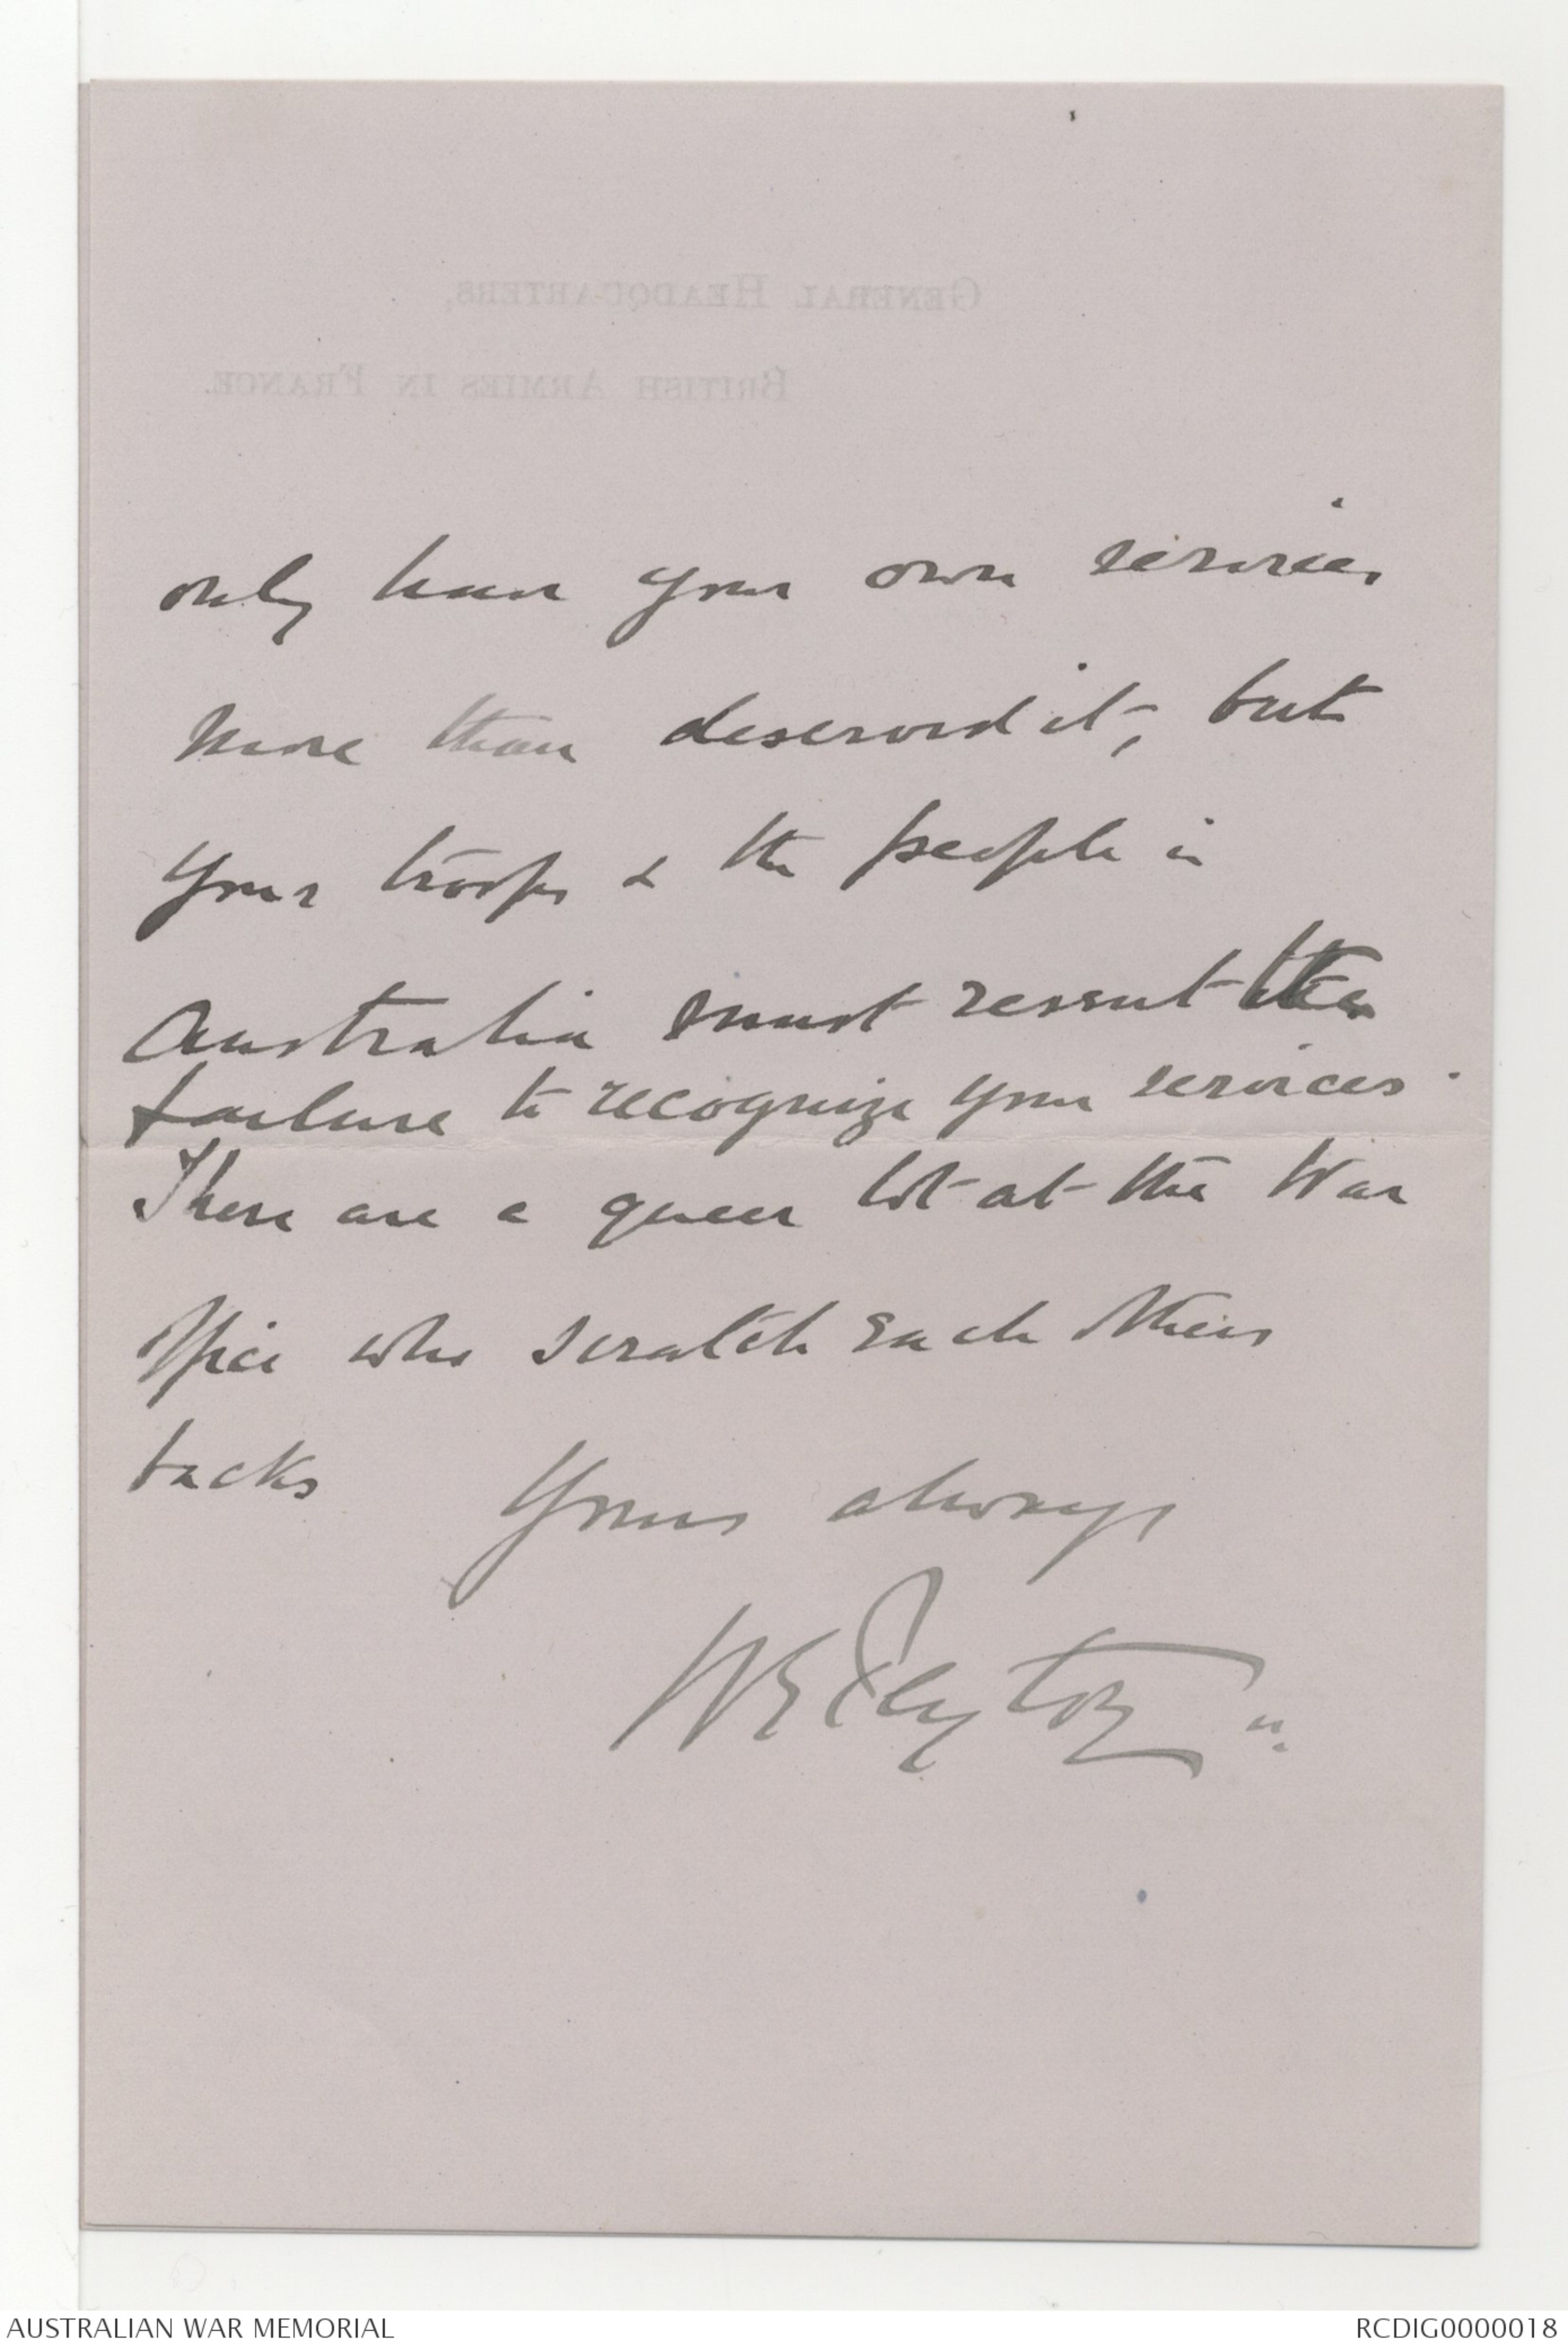 GENERAL HEADQUARTERS,
BRITISH ARMIES IN FRANCE.
only have your own services
more than deserved it, but
your troops & the people in
Australia must resent the
failure to recognize your services.
There are a queer lot at the War
Office who scratch each others
backs
Yours always
WE Peyton
AUSTRALIAN WAR MEMORIAL
RCDIG0000018